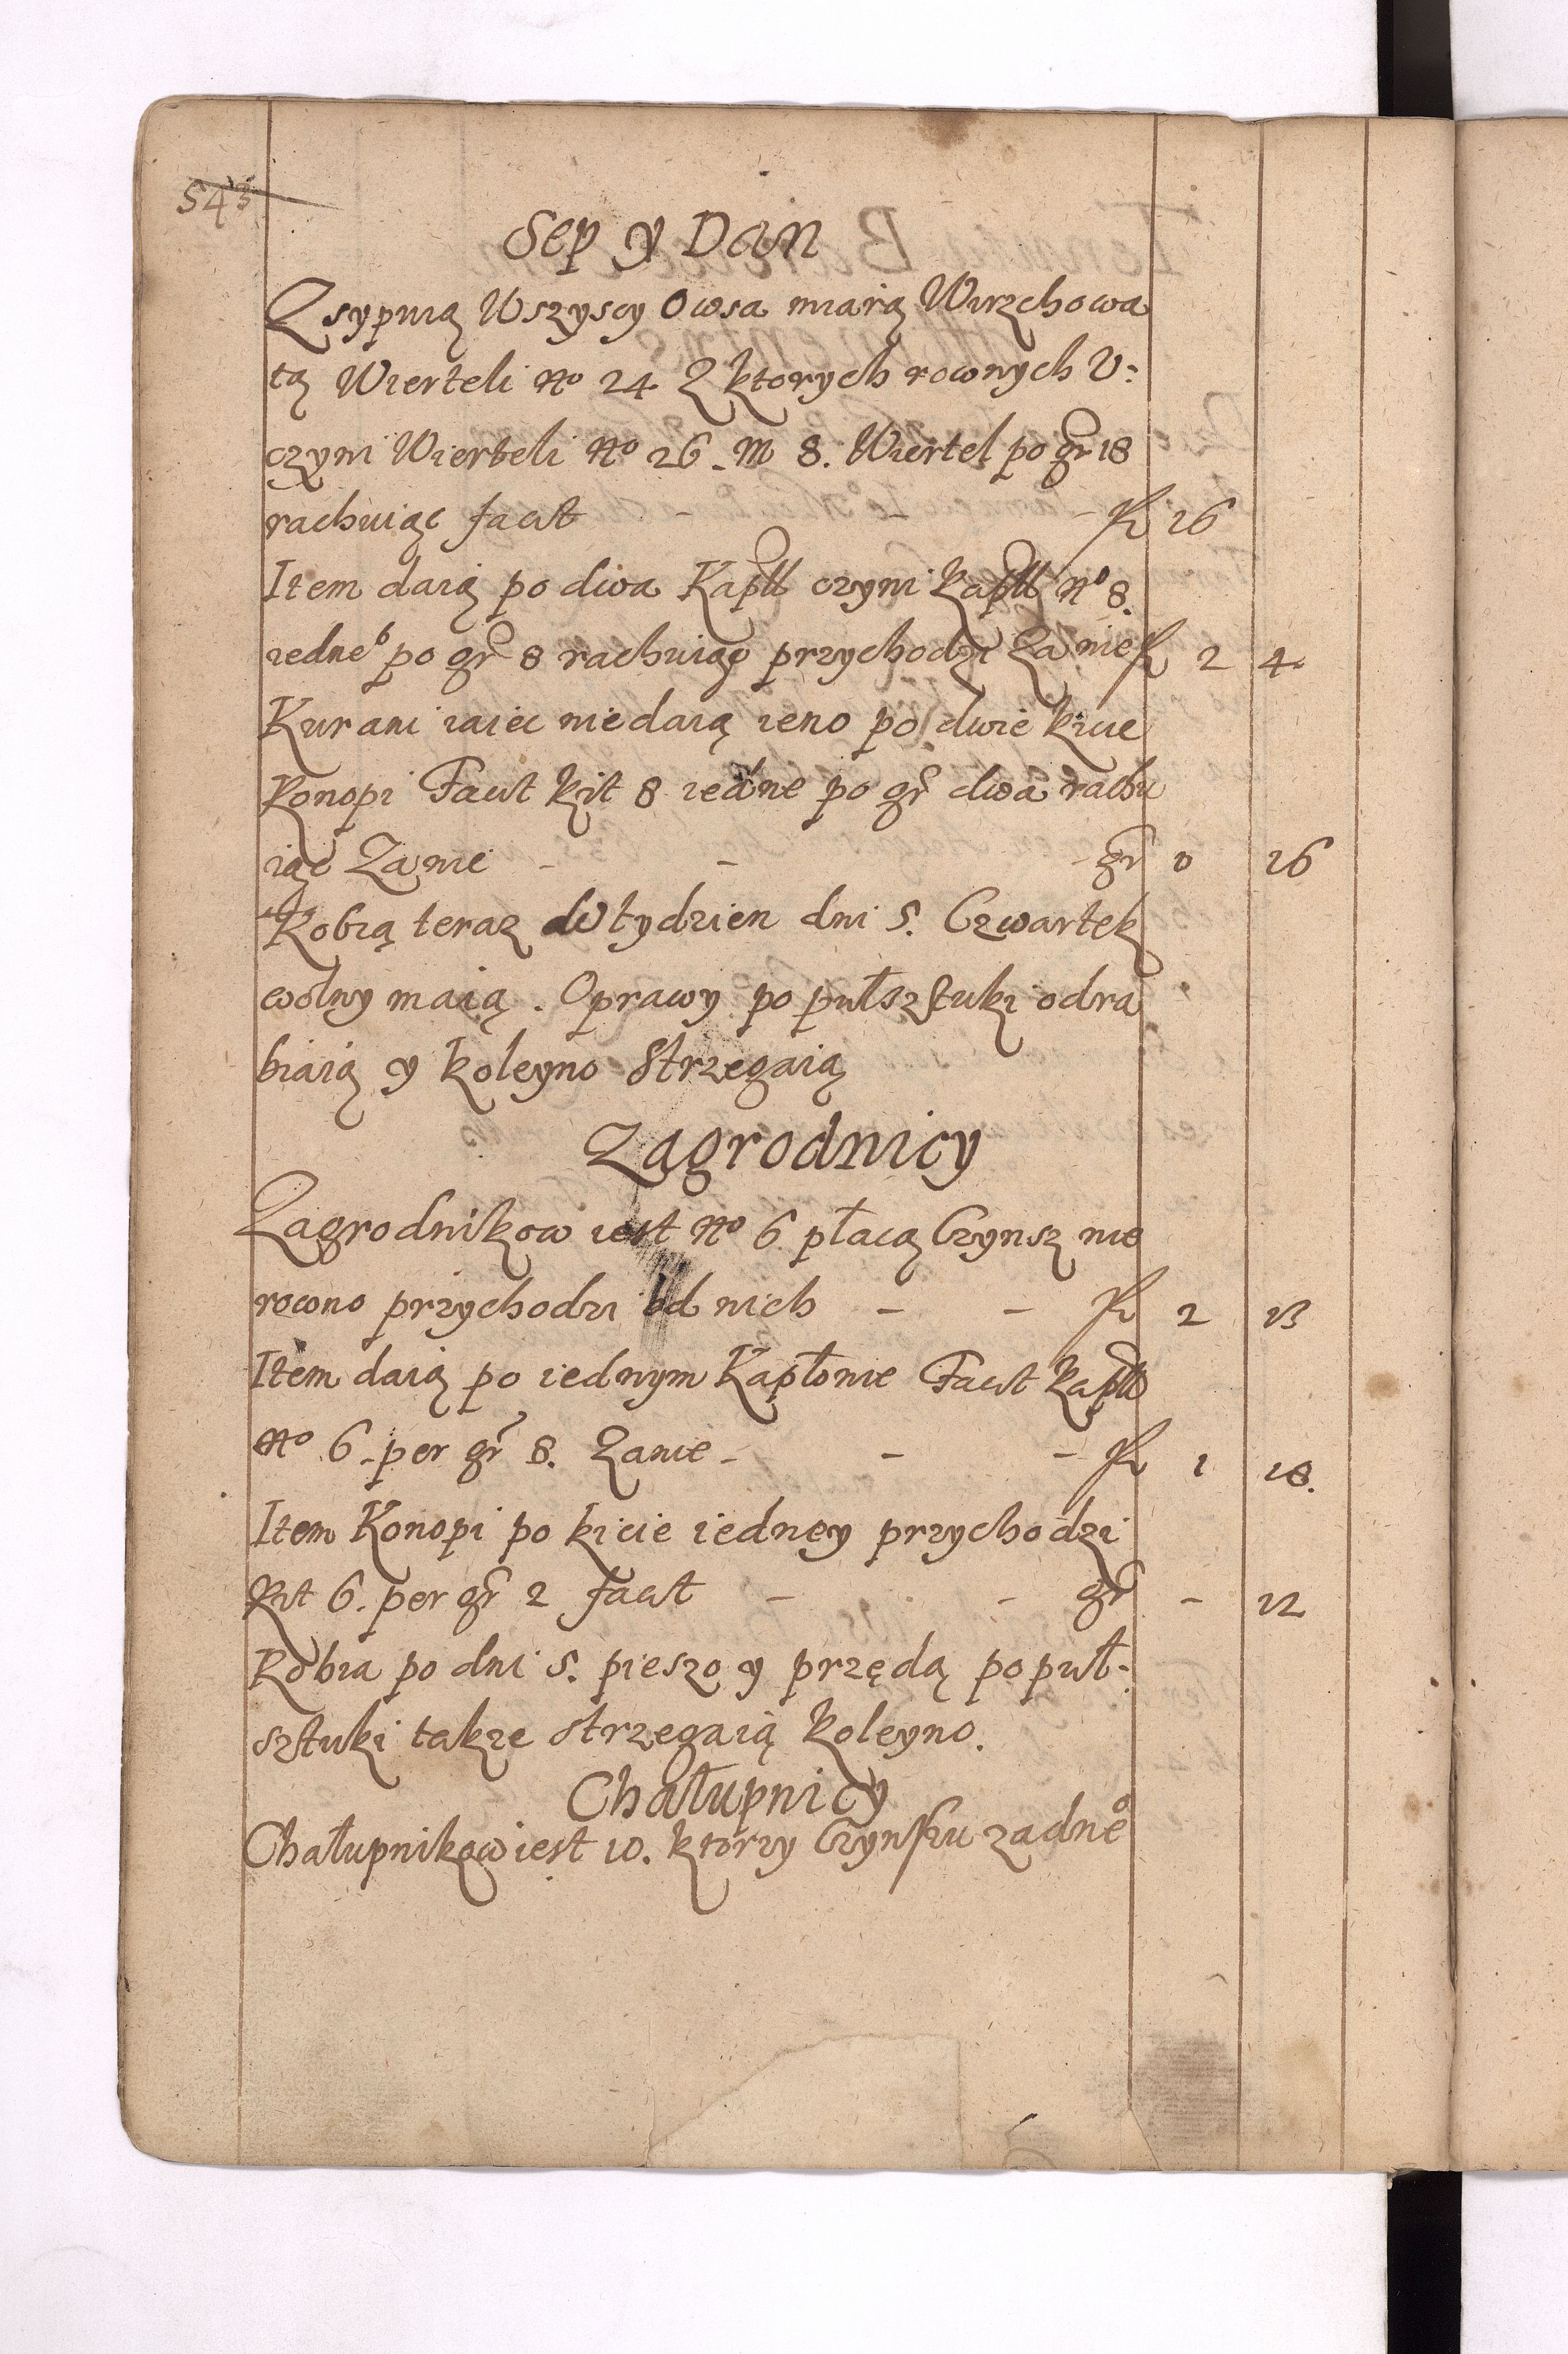 543
Sep y Dan
Zsypuią Wszyscy Owsa miarą Wirzchowa
tą Wierteli No 24 Z ktorych rownych V:
czyni Wierteli No 26. M 8. Wiertel po gr 18
rachuiąc facit - - - fl 16
Item daią po dwa Kapłl czyni kapłl No 8.
iedneo po gr 8 rachuiąc przychodzi Zanie fl 2 4
Kur ani iaiec niedaią ieno po dwie kicie
Konopi Facit kit 8 iedne po gr dwa rachu
iąc Zanie - - - gr 0 16
Robią teraz W tydzien dni 5. Czwartek
wolny maią. Oprawy po pułsztuki odra
biaią y koleyno Strzegaią
Zagrodnicy
Zagrodnikow iest No 6 płacą Czynsz nie
rowno przychodzi od nich - - fl 2 13
Item daią po iednym Kapłonie Facit kapłl
No 6. per gr 8. Zanie - - - fl 1 18.
Item Konopi po kicie iedney przychodzi
Kit 6. per gr 2 facit - - gr - 12
Robia po dni 5. pieszo y przędą po puł:
sztuki takze strzegaią koleyno.
Chałupnicy
Chałupnikow iest 10. ktorzy Czynszu zadneo